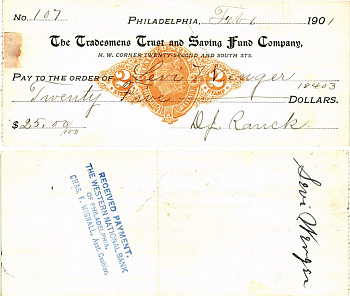 No. 107 Philadelphia, Feb 6 1901
The Tradesmens Trust and Saving Fund Company,
N. W. CORNER TWENTY-SECOND AND SOUTH STS.
PAY TO THE ORDER OF Levi Wenger
18403
Twenty five DOLLARS.
$25.00/100 D J Ranck
RECEIVED PAYMENT,
THE WESTERN NATIONAL BANK
OF PHILADELPHIA.
CHAS. F. WIGNALL, Asst. Cashier.
Levi Wenger